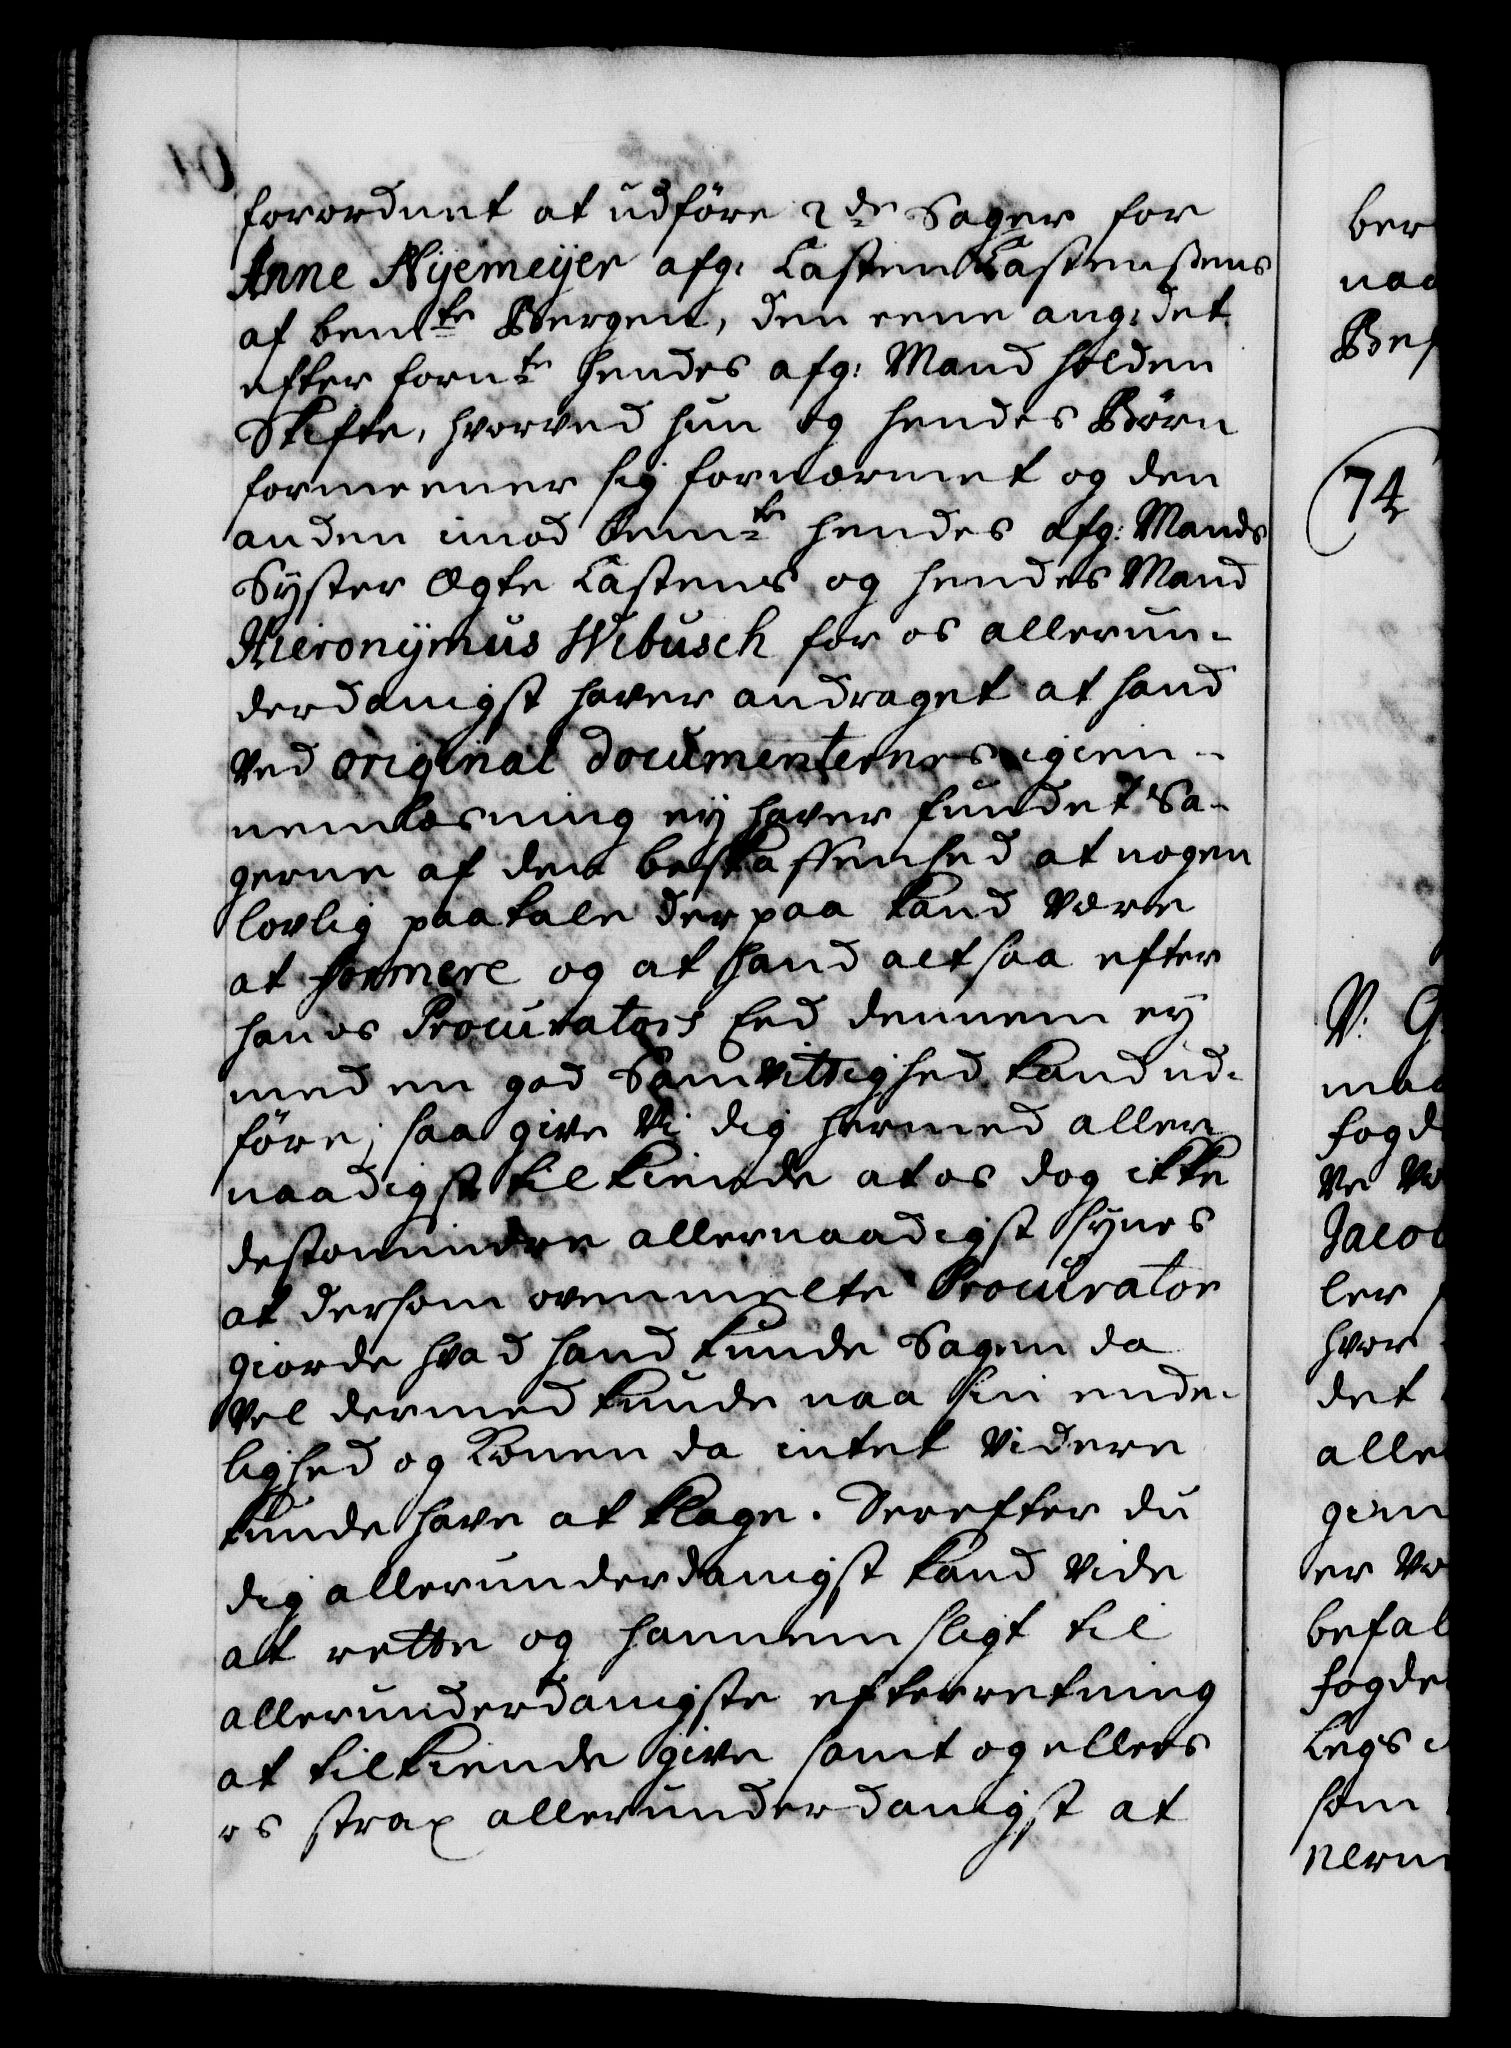 forordnet at udføre 2de Sager for
Anne Nijemeijer afg: Casten Castensens
af bemte Bergen, den eene ang: det
efter fornte hendes afg: Mand holden
Skifte, hvorved hun og hendes Børn
formeener sig fornærmet og den
anden imod bemte hendes afg: Mands
Syster Ægte Castens og hendes Mand
Hieronijmus Wibusch for os allerun-
derdanigst haver andraget at hand
ved original documenternes igien-
nemlæsning ej haver fundet Sa-
gerne af den beskaffenhed at nogen
lovlig paatale derpaa kand være
at formere og at hand altsaa efter
hans Procurators Eed dennem ej
med en god Samvittighed kand ud-
føre; saa give Vi dig hermed aller
naadigst tilkiende at os dog ikke
destomindre allernaadigst synes
at dersom ovenmelte Procurator
giorde hvad hand kunde Sagen da
vel dermed kunde naa sin ende-
lighed og Konen da intet videre
kunde have at klage. Derefter du
dig allerunderdanigst kand vide
at rette og hannem sligt til
allerunderdanigste efterretning
at tilkiende give samt og ellers
os strax allerunderdanigst at
ber
naa
Bef
74
V. G
maa
fogd
Jacob
ler
hvor
det
alle
gien
er
befal
fogde
som